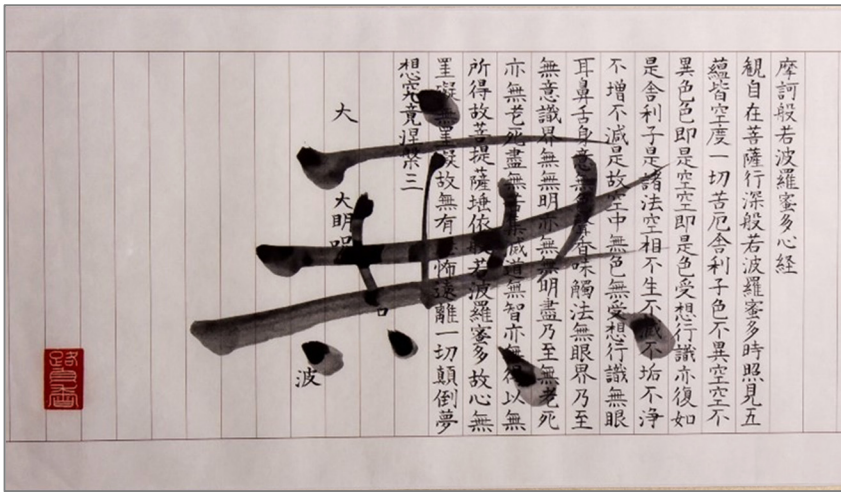 摩訶般若波羅蜜多心経
観自在菩薩行深般若波羅蜜多時照見五
蘊皆空度一切苦厄舎利子色不異空空不
異色色即是空空即是色受想行識亦復如
是舎利子是諸法空相不生不滅不垢不浄
不増不減是故空中無色無受想行識無眼
耳鼻舌身意無色聲香味觸法無眼界乃至
無意識界無無明亦無無明盡乃至無老死
亦無老死盡無苦集滅道無智亦無得以無
所得故菩提薩埵依般若波羅蜜多故心無
罣礙無罣礙故無有怖遠離一切顛倒夢
想究竟涅槃三
大 大明呪
波
無